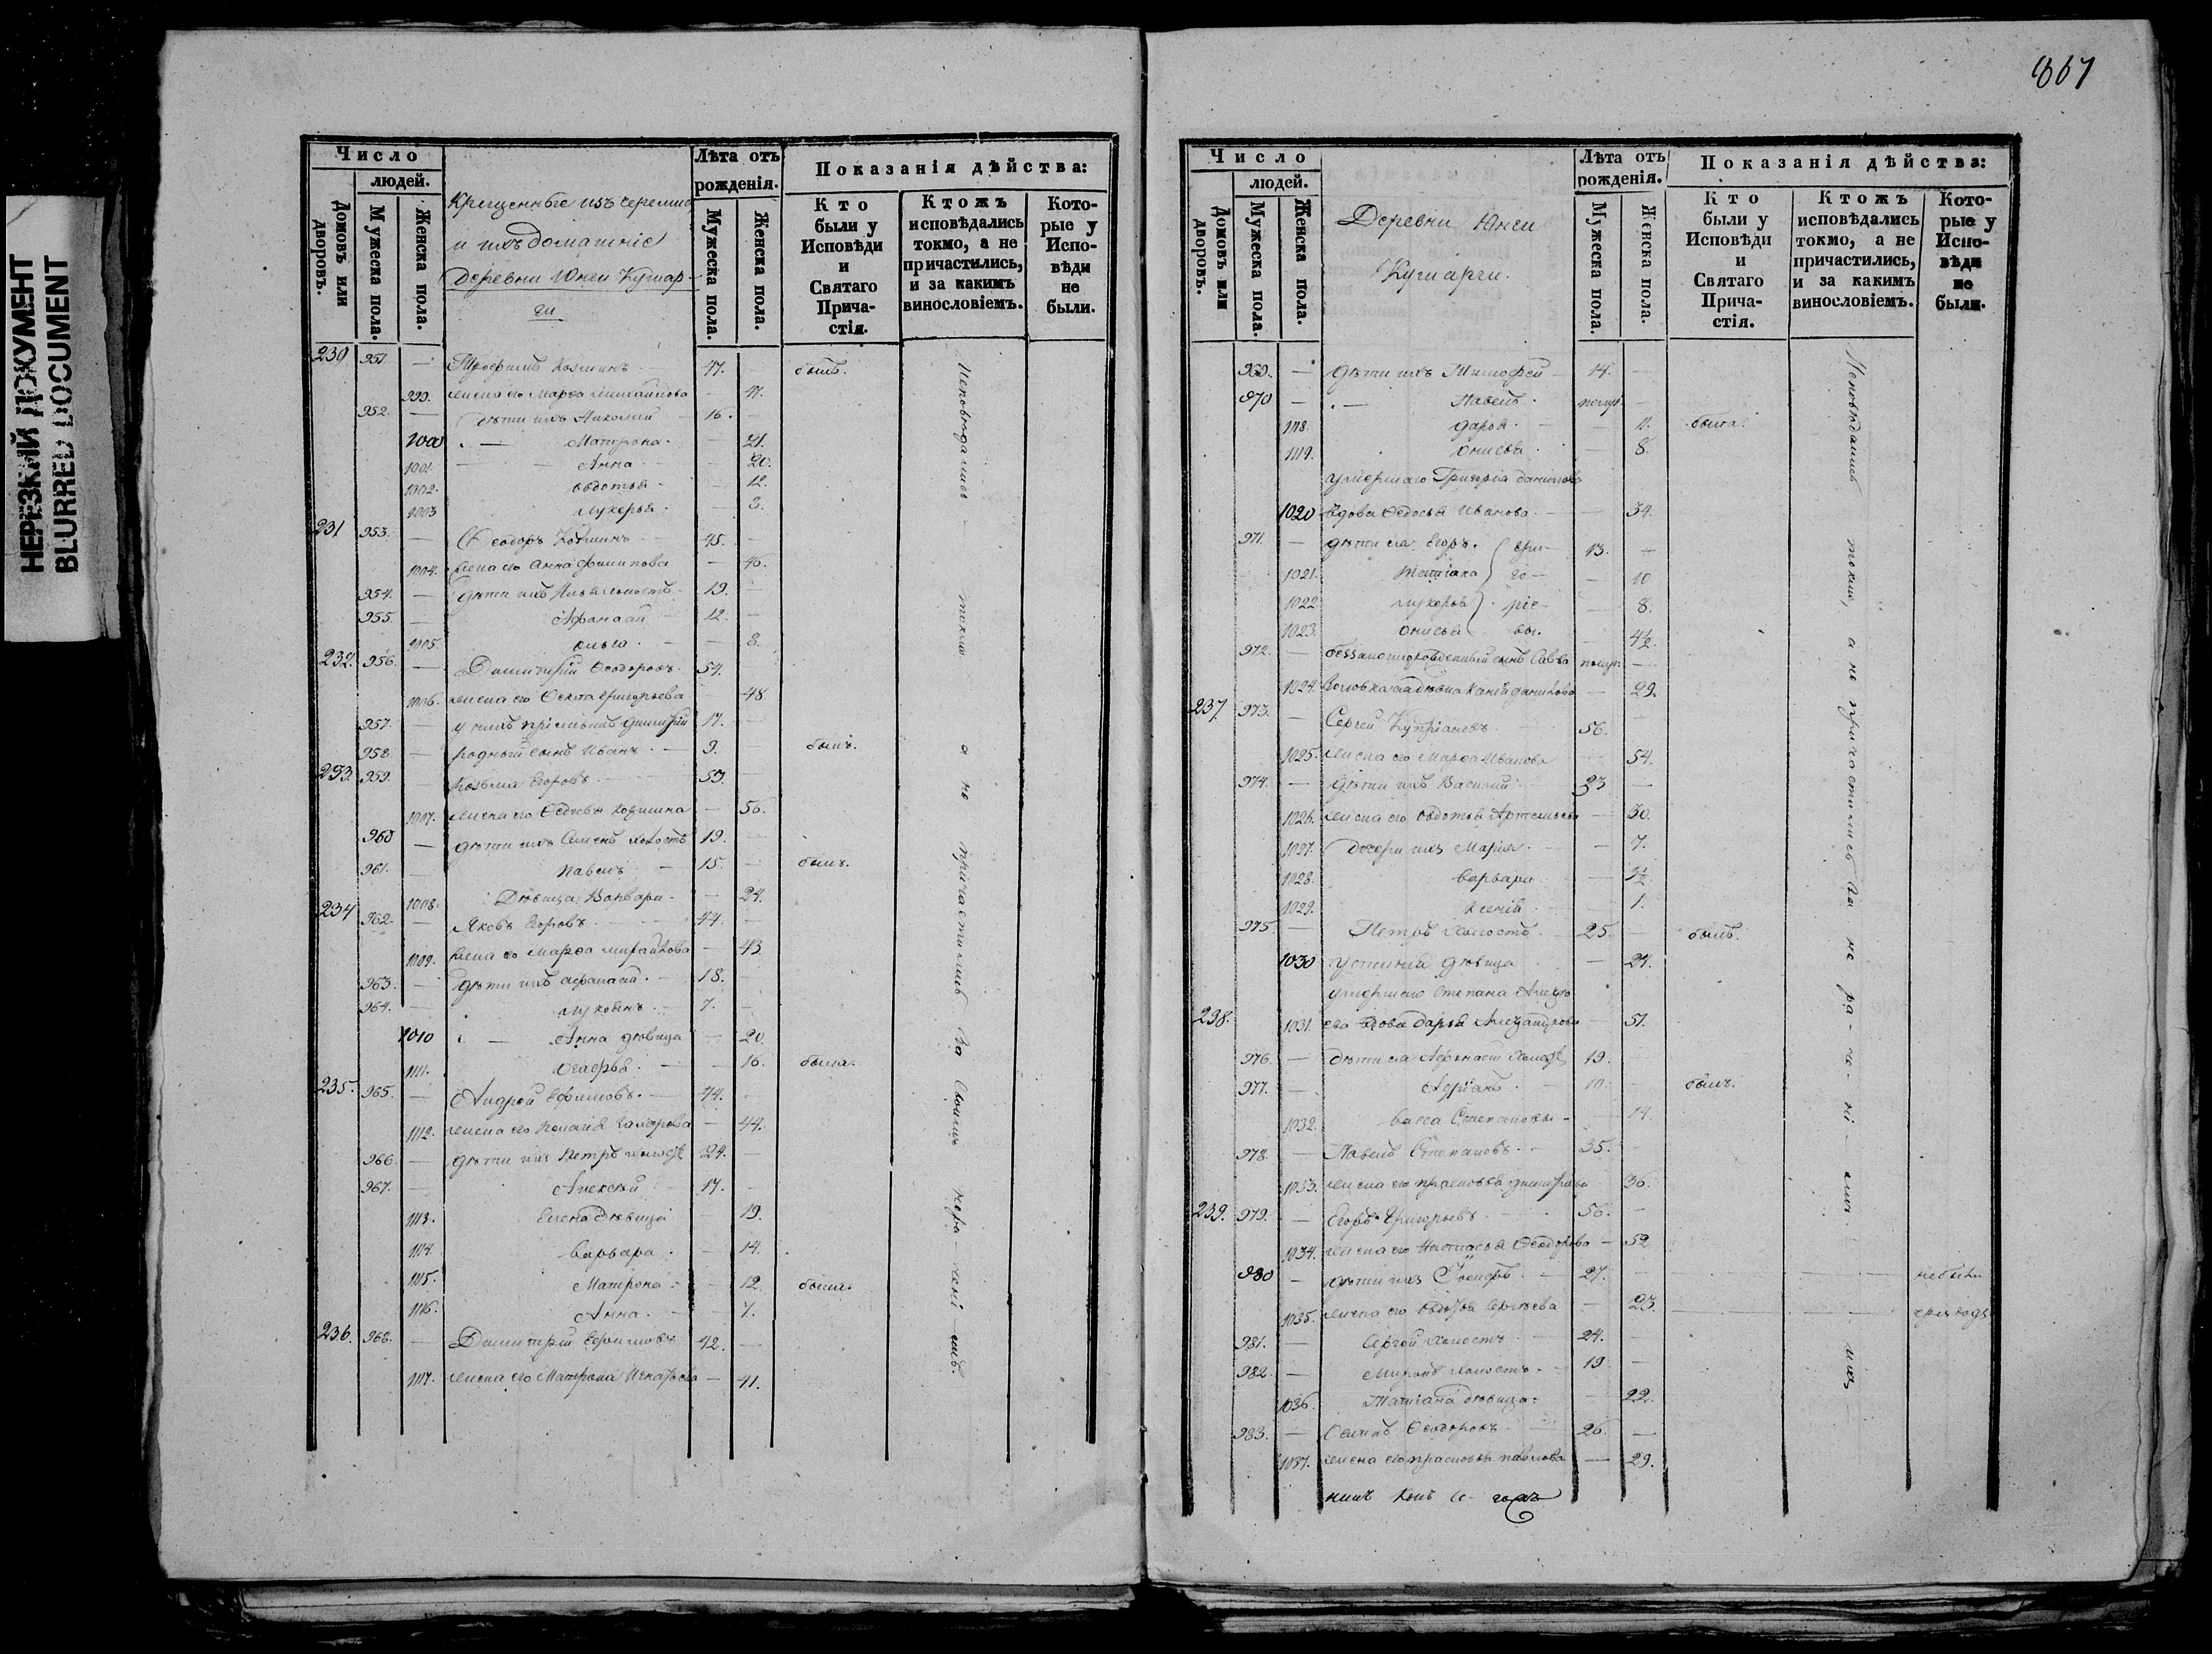 НЕРЕЗКИЙ ДОКУМЕНТ
BLURRED DOCUMENT
Число
людей.
Домовъ или дворовъ.
Мужеска пола.
Женска пола.
Крещенные изъ черемисъ
и ихъ домашніе
деревни Юнги Кушар-
ги
Лѣта отъ рожденія.
Мужеска пола.
Женска пола.
Показанія дѣйства:
Кто были у Исповѣди и Святаго Прича-стія.
Ктожъ исповѣдались токмо, а не причастились, и за какимъ винословіемъ.
Кото-рые у Испо-вѣди не были.
Исповѣдались токмо а не причастились за своимъ нера-чені-емъ.
230 951. — Трофимъ Козминъ 47. — былъ.
999. жена его Марѳа Михайлова — 47.
952. — дѣти ихъ Николай 16. —
1000 Матрона. — 21.
1001. Анна — 20.
1002. Овдотья — 12.
1003 Лукерья. — 3.
231 953. — Ѳеодоръ Козминъ 45. —
1004. жена его Анна Филипова — 46.
954. — дѣти ихъ холостъ. 19. —
955. — Афанасій 12. —
1005. Ольга. — 8.
232. 956. — Димитрій Ѳеодоровъ. 54.
1006. жена его Ѳекла Григорьева — 48
957. — у нихъ пріемышъ Димитрій 17. —
958. — родный сынъ Иванъ. 9. — былъ.
233. 959. — Козьма Егоровъ 59. —
1007. жена его Ѳедосья Козмина — 56.
960 — дѣти ихъ Семенъ холостъ 19. —
961. — Павелъ 15. — былъ.
1008. Дѣвица Варвара. — 24.
234 962. — Яковъ Егоровъ. 44. —
1009. жена его Марѳа Михайлова — 43
963. — дѣти ихъ Афанасій. 18. —
964. — Лукоянъ. 7. —
1010 Анна дѣвица — 20
1111. Агафья. — 16. была.
235. 965. — Андрей Ефимовъ. 44. —
1112. жена его Пелагія Захарова — 44.
966. — дѣти ихъ Петръ холостъ 24. —
967. — Алексѣй 17. —
1113. Елена дѣвица — 19.
1114. Варвара. — 14.
1115. Матрона — 12 была.
1116. Анна. — 7.
236. 968. — Димитрій Ефимовъ 42. —
1117. жена его Матрона Игнатьева — 41.
867
Число
людей.
Домовъ или дворовъ.
Мужеска пола.
Женска пола.
Деревни Юнги
Кушарги.
Лѣта отъ рожденія.
Мужеска пола.
Женска пола.
Показанія дѣйства:
Кто были у Исповѣди и Святаго Прича-стія.
Ктожъ исповѣдались токмо, а не причастились, и за какимъ винословіемъ.
Кото-рые у Испо-вѣди не были.
Исповѣдались токмо, а не причастились за не-ра-че-ні-емъ
969. — дѣти ихъ Тимофей 14. —
970 — Павелъ. —
1118. Дарья. — 11. была.
1119. Онисья — 8.
умершаго Григорія Данилова
1020 вдова Ѳедосья Иванова — 34.
971. — дѣти ея Егоръ. Гри- 13. —
1021. Татіана го- — 10
1022. Лукерья рье- — 8.
1023. Онисья вы. — 4½
972. — сынъ Савва —
1024. Ксенія Данилова — 29.
237. 973. — Сергей Купріановъ 56. —
1025. жена его Марѳа Иванова — 54.
974. — дѣти ихъ Василій 33 —
1026. жена его Овдотья Артемьева — 30.
1027. дочери ихъ Марія. — 7.
1028. Варвара —
1029. Ксенія — 1.
975. — Петръ холостъ. 25. — былъ.
1030 Устинія дѣвица — 24.
умершаго Степана Алексѣ
238. 1031. ева вдова Дарья Александрова — 51.
976. — дѣти ея Афанасій холостъ 19. —
977. — Адріанъ. 10. — былъ.
1032. Васса Степановы — 14.
978. — Павелъ Степановъ. 35. —
1033. жена его Прасковья Димитріева 36.
239. 979. — Егоръ Григорьевъ 56. —
1034. жена его Настасья Ѳеодорова — 52
980 — дѣти ихъ Іосифъ. 27. — небыли
1035. жена его Овдотья Сергѣева — 23.
981. — Сергей холостъ. 24. —
982. — Миронъ холостъ. 19 —
1036. Татіана дѣвица. — 22.
983. — Семенъ Ѳеодоровъ. 26. —
1037. жена его Прасковья Павлова — 29.